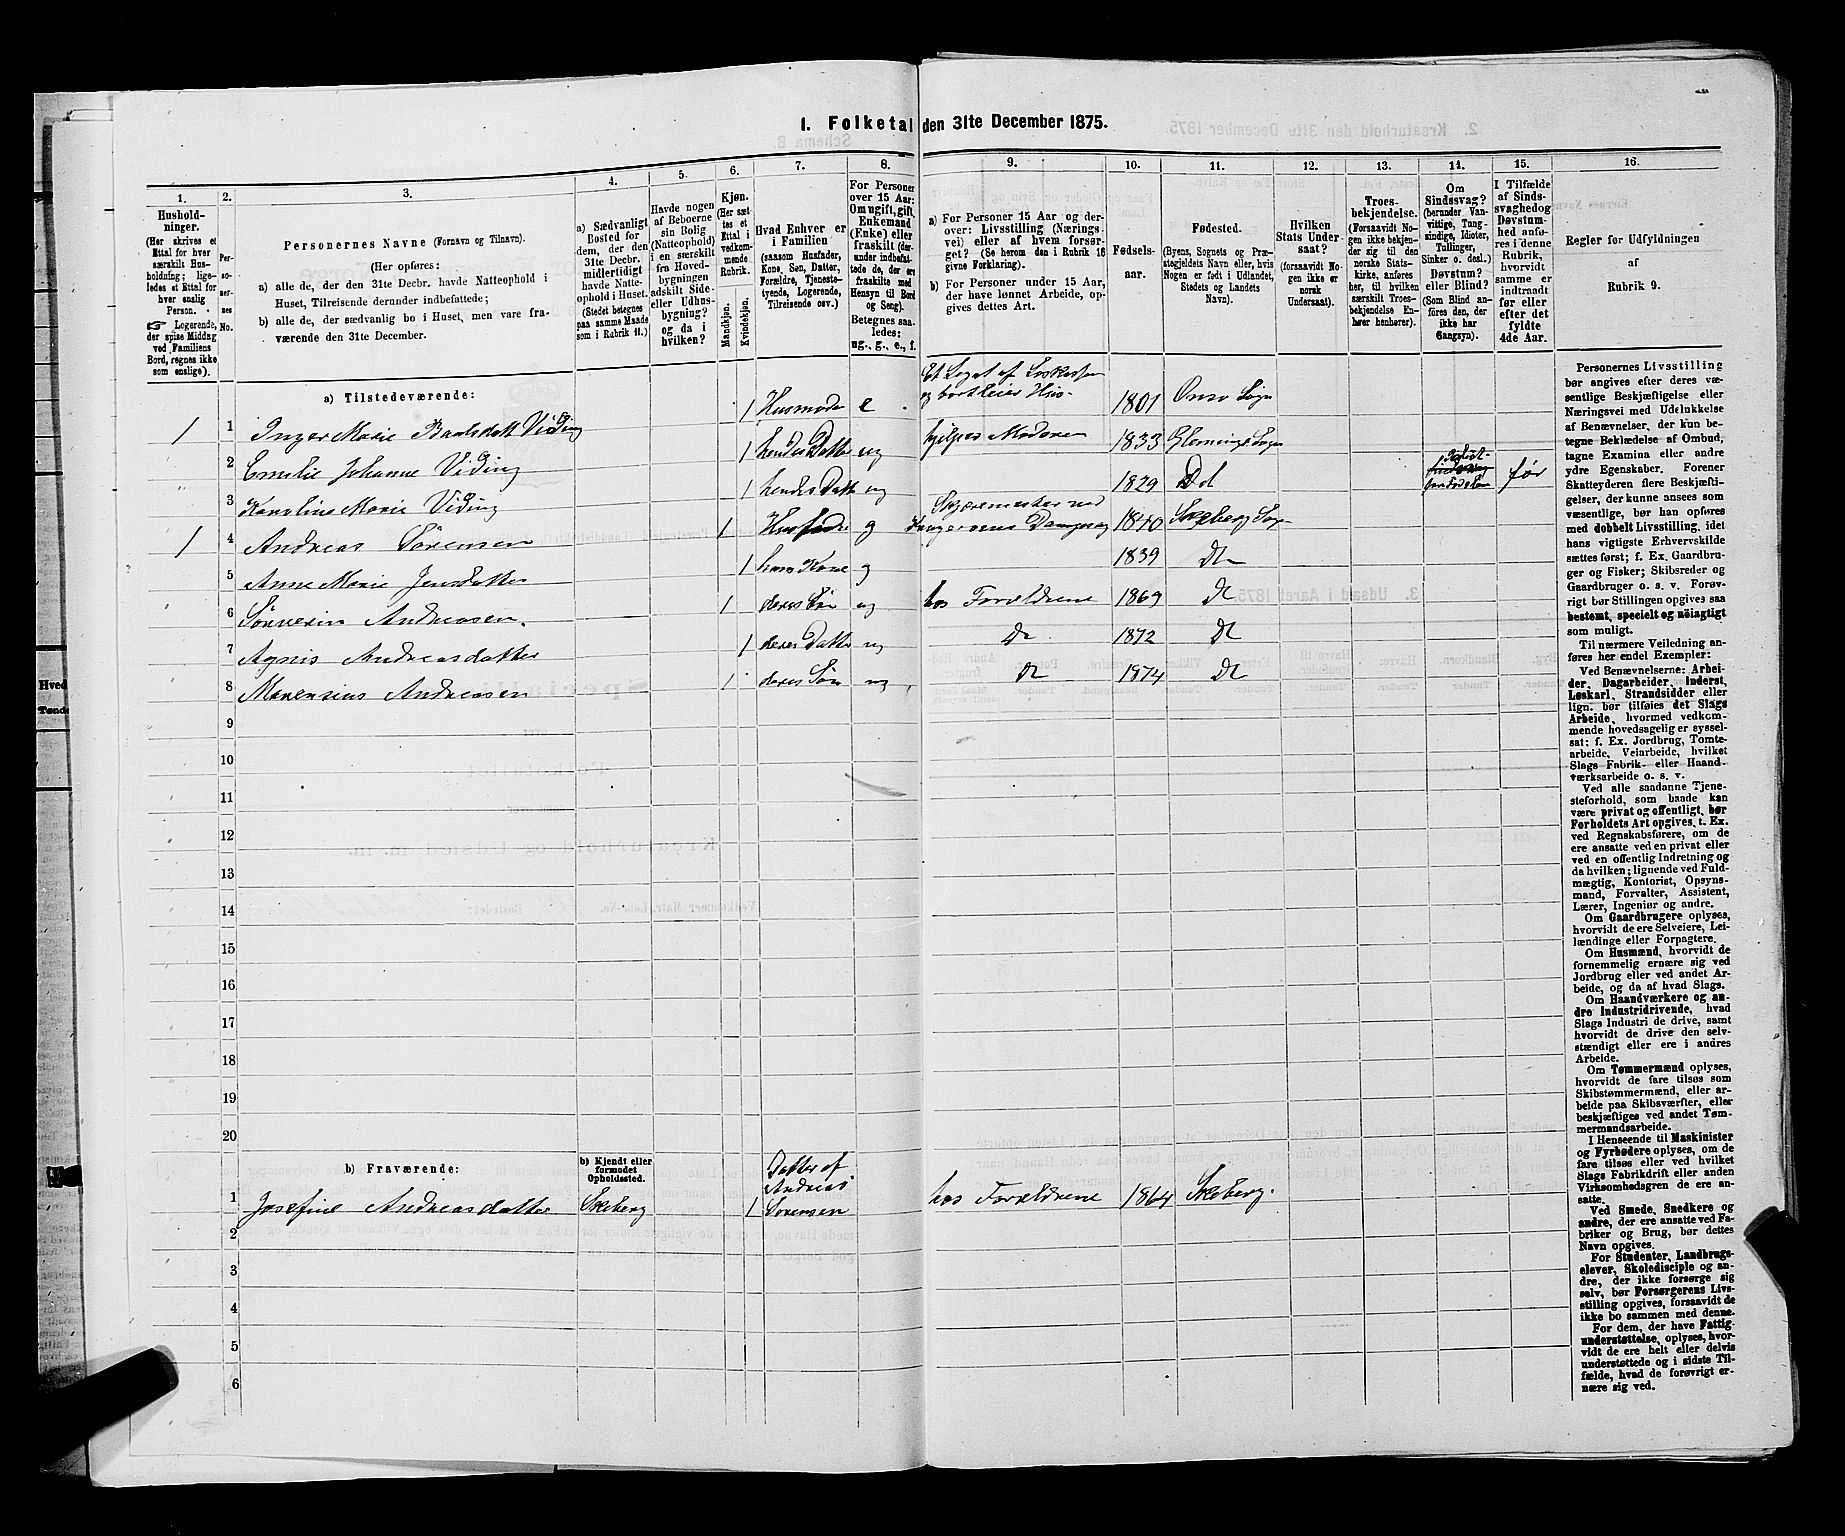 I. Folketal den 31te December 1875.
1. 2. 3. 4. 5. 6. 7. 8. 9. 10. 11. 12. 13. 14. 15. 16.
Hushold-
ninger.
(Her skrives et
Ettal for hver
særskilt Hus-
holdning; lige-
ledes et Ettal for
hver enslig
Person.
☞ Logerende,
der spise Middag
ved Familiens
Bord, regnes ikke
som enslige).
Per-
so-
ner-
nes
No.
Personernes Navne (Fornavn og Tilnavn).
(Her opføres:
a) alle de, der den 31te Decbr. havde Natteophold i
Huset, Tilreisende derunder indbefattede;
b) alle de, der sædvanlig bo i Huset, men vare fra-
værende den 31te December.
a) Sædvanligt
Bosted for
dem, der den
31te Decbr.
midlertidigt
havde Natte-
ophold i Huset.
(Stedet betegnes
paa samme Maade
som i Rubrik 11.)
Havde nogen
af Beboerne
sin Bolig
(Natteophold)
i en særskilt
fra Hoved-
bygningen
adskilt Side-
eller Udhus-
bygning?
og da i
hvilken?
Kjøn.
(Her sæt-
tes et
Ettal i
vedkom-
mende
Rubrik.
Mandkjøn.
Kvindekjøn.
Hvad Enhver er
i Familien
(saasom Husfader,
Kone, Søn, Datter,
Forældre, Tjeneste-
tyende, Logerende,
Tilreisende osv.)
For Personer
over 15 Aar:
Om ugift, gift,
Enkemand
(Enke) eller
fraskilt (der-
under indbefat-
tede de, der ere
fraskilte med
Hensyn til Bord
og Seng).
Betegnes saa-
ledes:
ug., g., e., f.
a) For Personer 15 Aar og der-
over: Livsstilling (Nærings-
vei) eller af hvem forsør-
get? (Se herom den i Rubrik 16
givne Forklaring).
b) For Personer under 15 Aar,
der have lønnet Arbeide, op-
gives dettes Art.
Fødsels-
aar.
Fødested.
(Byens, Sognets og Præ-
stegjeldets Navn eller, hvis
Nogen er født i Udlandet,
Stedets og Landets
Navn).
Hvilken
Stats Under-
saat?
(forsaavidt No-
gen ikke er
norsk
Undersaat).
Troes-
bekjendelse.
(Forsaavidt No-
gen ikke bekjen-
der sig til den
norske Stats-
kirke, anføres
her, til hvilken
særskilt Troes-
bekjendelse En-
hver henhører).
Om
Sindssvag?
(herunder Van-
vittige, Tung-
sindige, Idioter,
Tullinger,
Sinker o. desl.)
Døvstum?
eller Blind?
(Som Blind an-
føres den, der
ikke har
Gangsyn).
I Tilfælde
af Sinds-
svaghed og
Døvstum-
hed anfø-
res i denne
Rubrik,
hvorvidt
samme er
indtraadt
før eller
efter det
fyldte
4de Aar.
Regler for Udfyldningen
af
Rubrik 9.
a) Tilstedeværende:
1 1 Inger Marie Viding 1 Husmoder e og bortleier Hus 1801 Onsø Sogn
2 Emilie Johanne Viding 1 hendes Datter ug hjelper Moderen 1833 Glemminge Sogn
3 Karoline Marie Viding 1 hendes Datt ug 1829 Do før
1 4 Andreas Sørensen 1 Husfader g 1840 Skeberg Sogn
5 Anne Marie Jensdatter 1 hans Kone g 1839 Do
6 Søverin Andreasen. 1 deres Søn ug hos Forældrene 1869 Do
7 Agnis Andreasdatter 1 deres Datter ug Do 1872 Do
8 Marensius Andreasen 1 deres Søn ug Do 1874 Do
9
10
11
12
13
14
15
16
17
18
19
20
b) Fraværende:
b) Kjendt eller
formodet
Opholdssted.
Datter af
Andreas
1 Josefine Andreasdatter Skeberg 1 Sørensen hos Forældrene 1864 Skeberg.
2
3
4
5
6
Personernes Livsstilling
bør angives efter deres væ-
sentlige Beskjæftigelse eller
Næringsvei med Udelukkelse
af Benævnelser, der kun be-
tegne Beklædelse af Ombud,
tagne Examina eller andre
ydre Egenskaber. Forener
Skatteyderen flere Beskjæfti-
gelser, der kunne ansees som
væsentlige, bør han opføres
med dobbelt Livsstilling, idet
hans vigtigste Erhvervskilde
sættes først; f. Ex. Gaardbru-
ger og Fisker; Skibsreder og
Gaardbruger o. s. v. Forøv-
rigt bør Stillingen opgives saa
bestemt, specielt og nöiagtigt
som muligt.
Til nærmere Veiledning an-
føres her endel Exempler:
Ved Benævnelserne: Arbei-
der, Dagarbeider, Inderst,
Løskarl, Strandsidder eller
lign. bør tilføies det Slags
Arbeide, hvormed vedkom-
mende hovedsagelig er syssel-
sat; f. Ex. Jordbrug, Tomte-
arbeide, Veiarbeide, hvilket
Slags Fabrik- eller Haand-
værksarbeide o. s. v.
Ved alle saadanne Tjene-
steforhold, som baade kan
være privat og offentligt, bør
Forholdets Art opgives, t. Ex.
ved Regnskabsførere, om de
ere ansatte ved en privat eller
ved en offentlig Indretning og
da hvilken; lignende ved Fuld-
mægtig, Kontorist, Opsyns-
mand, Forvalter, Assistent,
Lærer, Ingeniør og andre.
Om Gaardbrugere oplyses,
hvorvidt de ere Selveiere, Lei-
lændinge eller Forpagtere.
Om Husmænd, hvorvidt de
fornemmelig ernære sig ved
Jordbrug eller ved andet Ar-
beide, og da af hvad Slags.
Om Haandværkere og an-
dre Industridrivende, hvad
Slags Industri de drive, samt
hvorvidt de drive den selv-
stændigt eller ere i andres
Arbeide.
Om Tømmermænd oplyses,
hvorvidt de fare tilsøs som
Skibstømmermænd, eller ar-
beide paa Skibsværfter, eller
beskjæftiges ved andet Tøm-
mermandsarbeide.
I Henseende til Maskinister
og Fyrbødere oplyses, om de
fare tilsøs eller ved hvilket
Slags Fabrikdrift eller anden
Virksomhedsgren de ere an-
satte.
Ved Smede, Snedkere og
andre, der ere ansatte ved Fa-
briker og Brug, bør dettes
Navn opgives.
For Studenter, Landbrugs-
elever, Skoledisciple og an-
dre, der ikke forsørge sig
selv, bør Forsørgerens Livs-
stilling opgives, forsaavidt de
ikke bo sammen med denne.
For dem, der have Fattig-
understøttelse, oplyses, hvor-
vidt de ere helt eller delvis
understøttede og i sidste Til-
fælde, hvad de forøvrigt er-
nære sig ved.